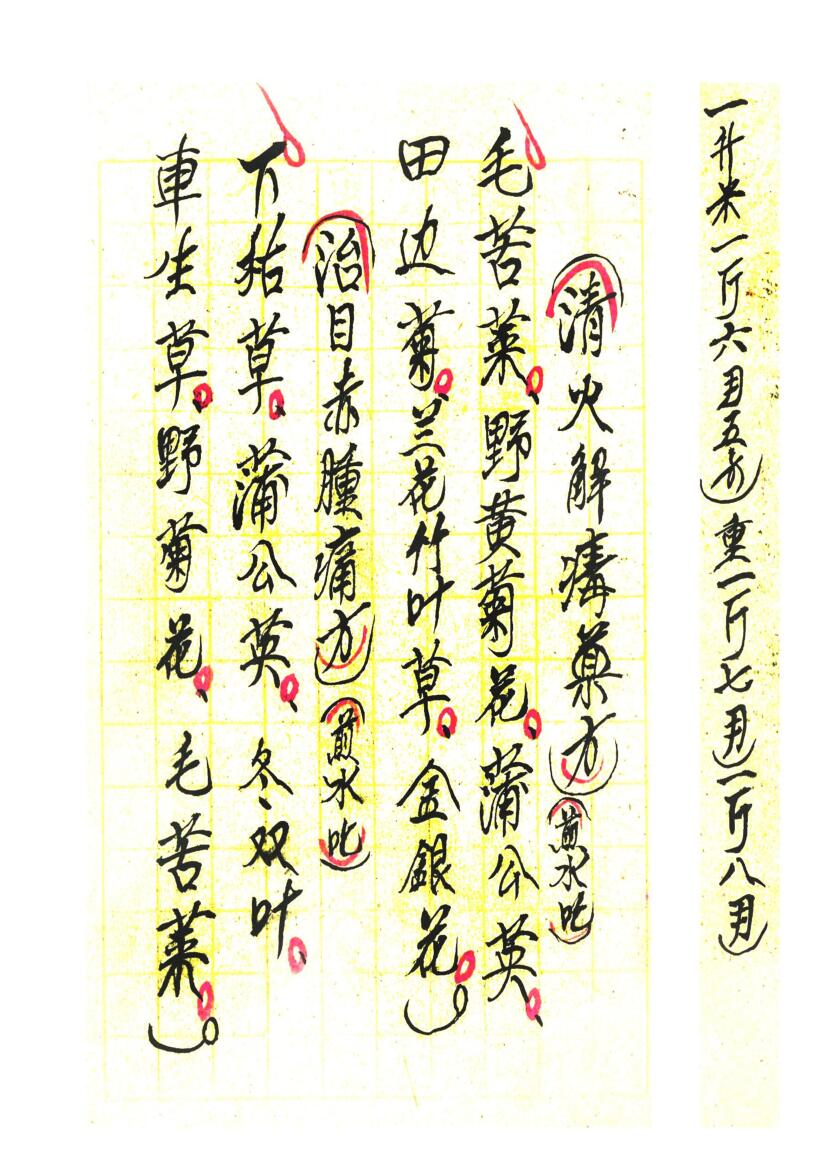 一升米一斤六月五方重一斤七月一斤八月
清火解毒藥方煎水吃
毛苦菜野黄菊花蒲公英
田边菊兰花竹叶草金銀花
治目赤腫痛方煎水吃
下枯草蒲公英冬双叶
車生草野菊花毛苦菜